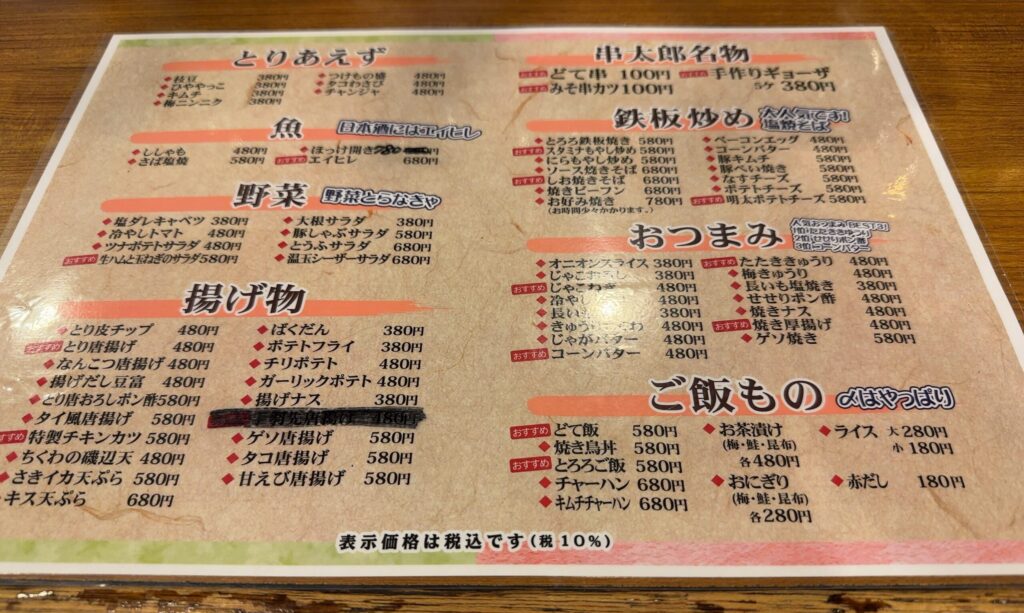 とりあえず
枝豆 380円
ひややっこ 380円
キムチ 380円
梅ニンニク 380円
つけもの盛 480円
タコわさび 480円
チャンジャ 480円
魚
日本酒にはエイヒレ
ししゃも 480円
さば塩焼 580円
ほっけ開き
おすすめ エイヒレ 680円
野菜
野菜とらなきゃ
塩ダレキャベツ 380円
冷やしトマト 480円
ツナポテトサラダ 480円
おすすめ 生ハムと玉ねぎのサラダ 580円
大根サラダ 380円
豚しゃぶサラダ 580円
とうふサラダ 680円
温玉シーザーサラダ 680円
揚げ物
とり皮チップ 480円
おすすめ とり唐揚げ 480円
なんこつ唐揚げ 480円
揚げだし豆富 480円
とり唐おろしポン酢 580円
タイ風唐揚げ 580円
おすすめ 特製チキンカツ 580円
ちくわの磯辺天 480円
さきイカ天ぷら 580円
キス天ぷら 680円
ばくだん 380円
ポテトフライ 380円
チリポテト 480円
ガーリックポテト 480円
揚げナス 380円
手羽先唐揚げ 480円
ゲソ唐揚げ 580円
タコ唐揚げ 580円
甘えび唐揚げ 580円
串太郎名物
おすすめ どて串 100円
おすすめ みそ串カツ 100円
おすすめ 手作りギョーザ
5ケ 380円
鉄板炒め
大人気です!
塩焼そば
とろろ鉄板焼き 580円
おすすめ スタミナもやし炒め 580円
にらもやし炒め 580円
ソース焼きそば 680円
おすすめ しお焼きそば 680円
焼きビーフン 680円
お好み焼き 780円
(お時間少々かかります。)
ベーコンエッグ 480円
コーンバター 480円
豚キムチ 580円
豚ぺい焼き 580円
なすチーズ 580円
ポテトチーズ 580円
おすすめ 明太ポテトチーズ 580円
おつまみ
人気おつまみ「BEST3」
1位・たたききゅうり
2位・せせりポン酢
3位・コーンバター
オニオンスライス 380円
じゃこおろし 380円
おすすめ じゃこねぎ 480円
冷やし
長い
きゅうり
じゃがバター 480円
おすすめ コーンバター 480円
おすすめ たたききゅうり 480円
梅きゅうり 480円
長いも塩焼き 380円
せせりポン酢 480円
焼きナス 480円
おすすめ 焼き厚揚げ 480円
ゲソ焼き 580円
ご飯もの
〆はやっぱり
おすすめ どて飯 580円
焼き鳥丼 580円
おすすめ とろろご飯 580円
チャーハン 680円
キムチチャーハン 680円
お茶漬け
(梅・鮭・昆布)
各480円
おにぎり
(梅・鮭・昆布)
各280円
ライス 大280円
小180円
赤だし 180円
表示価格は税込です(税10%)